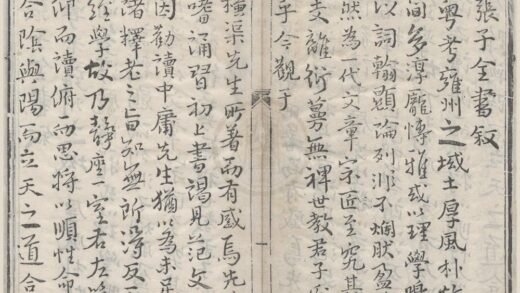 張子全書叙
粤考雍州之域土厚風朴
間多淳龎愽雅或以理學
以詞翰顯論列非不爛朕盈
然為一代文章宗匠至究其
支離衍蔓無裨世教君子
乎今觀于
一
橫渠先生所著而有感焉先
嗜誦習初上書謁見范文
因勸讀中庸先生猶以為未足
諸釋老之旨知無所淂反
經學故乃座一室右左
仰而讀俯而思將以順性命
合陰與陽而立天之道合